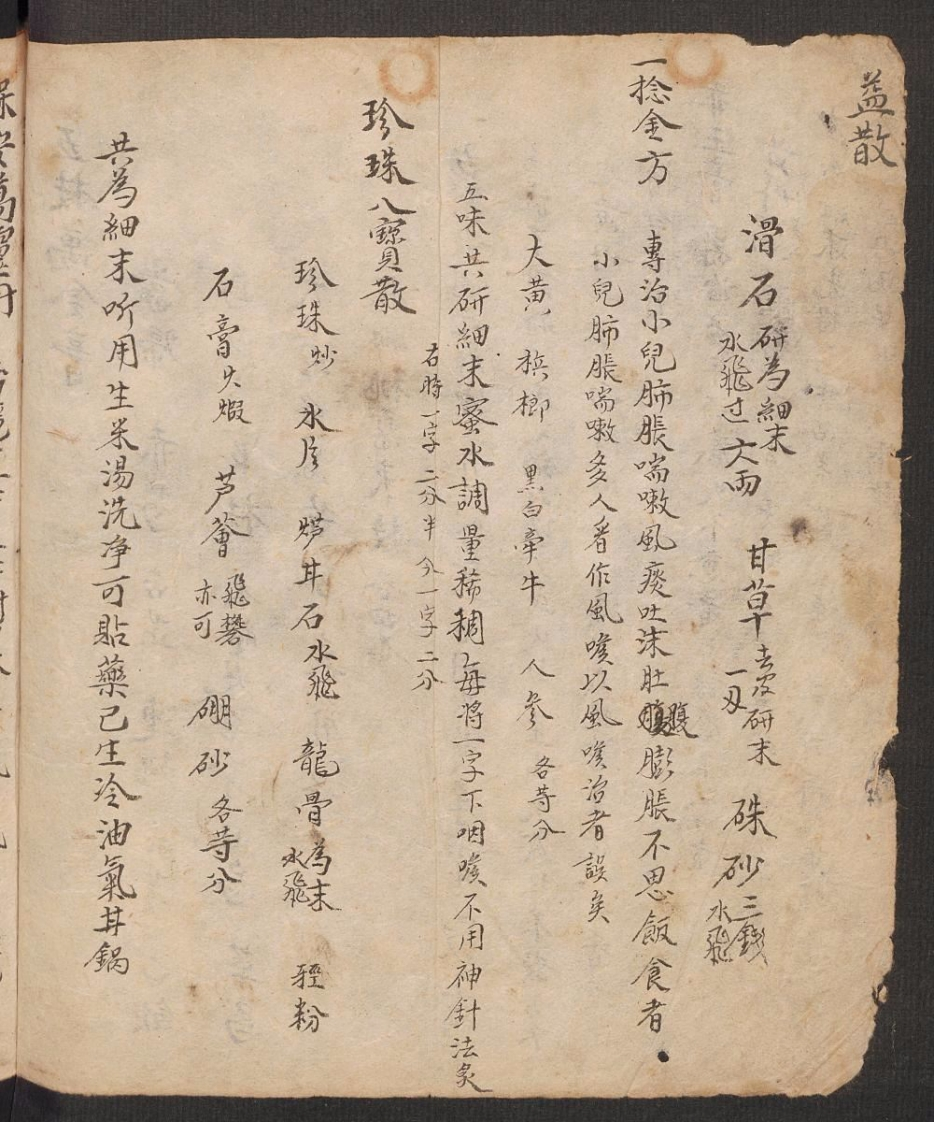 益散
滑石 研為細末 水飛过 六両 甘草 去皮研末 一刄 硃砂 三錢 水飛
一捻金方 專治小兒肺脹喘嗽風痰吐沫肚腹膨脹不思飯食者
小兒肺脹喘嗽多人看作風喉以風喉治者誤矣
大黄 梹榔 黒白牽牛 人參 各等分
五味共研細末蜜水調量稀稠每將一字下咽喉不用神針法灸
右時一字二分半 分一字二分
珍珠八寶散
珍珠炒 氷片 炉甘石水飛 龍骨 為末 水飛 輕粉
石膏火煅 芦薈 飛礬 亦可 硼砂 各等分
共為細末听用生米湯洗净可貼藥已生冷油氣